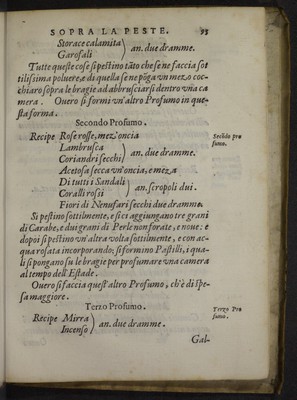 SOPRA LA PESTE. 95
Storace calamita
Garofali ) an. due dramme.
Tutte queste cose si pestino tãto che se ne faccia sot
tilissima poluere,e di quella se ne põga vn mezo coc-
chiaro sopra le bragie ad abbrusciarsi dentro vna ca
mera. Ouero si formi vn'altro Profumo in que-
sta forma.
Secondo Profumo.
Recipe Rose rosse, mez'oncia
Secõdo pro
fumo.
Lambrusca
Coriandri secchi ) an. due dramme.
Acetosa secca vn'oncia, e meza
Di tutti i Sandali
Coralli rossi ) an. scropoli dui.
Fiori di Nenufari secchi due dramme.
Si pestino sottilmente, e si ci aggiungano tre grani
di Carabe, e dui grani di Perle non forate, e noue: e
dopoi si pestino vn'altra volta sottilmente, e con ac-
qua rosata incorporando, si formino Pastilli, i qua-
li si pongano su le bragie per profumare vna camera
al tempo dell'Estade.
Ouero si faccia quest'altro Profumo, ch'è di spe-
sa maggiore.
Terzo Profumo.
Terzo Pro
fumo.
Recipe Mirra
Incenso ) an. due dramme.
Gal-